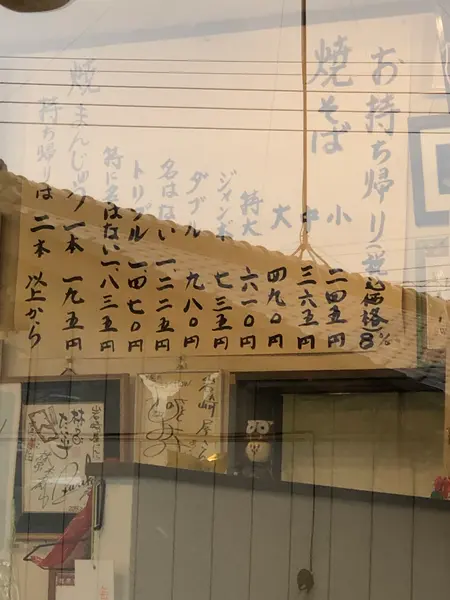 お持ち帰り(税込価格)8%
焼そば
小 二四五円
中 三六五円
大 四九〇円
特大 六一〇円
ジャンボ 七三五円
ダブル 九八〇円
名はない 一、二二五円
トリプル 一、四七〇円
特に名はない 一、八三五円
焼まんじゅう 一本 一九五円
持ち帰りは 二本 以上から